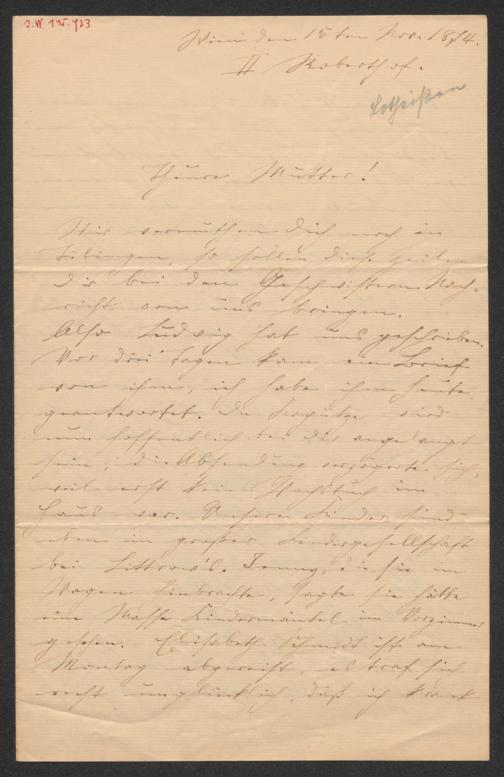 I.N. 195.723
Wien den 15ten Nov. 1874.
II Roberthof.
Lotheißen
Theure Mutter!
Wir vermuthen Dich noch in
Tübingen, so sollen diese Zeilen
Dir bei den Geschwistern Nach-
richt von uns bringen.
Also Ludwig hat uns geschrieben.
Vor drei Tagen kam ein Brief
von ihm, ich habe ihm heute
geantwortet. Die Kaputze wird
nun hoffentlich bei Dir angelangt
sein, die Absendung verzögerte sich,
weil erst kein Wachstuch im
Haus war. Unsere Kinder sind
eben in großer Kindergesellschaft
bei Littrow's. Jenny, die sie im
Wagen hinbrachte, sagte sie hätte
eine Masse Kindermäntel im Vorzimmer
gesehen. Elisabeth Schmidt ist am
Montag abgereist, es traf sich
recht unglücklich, daß ich krank